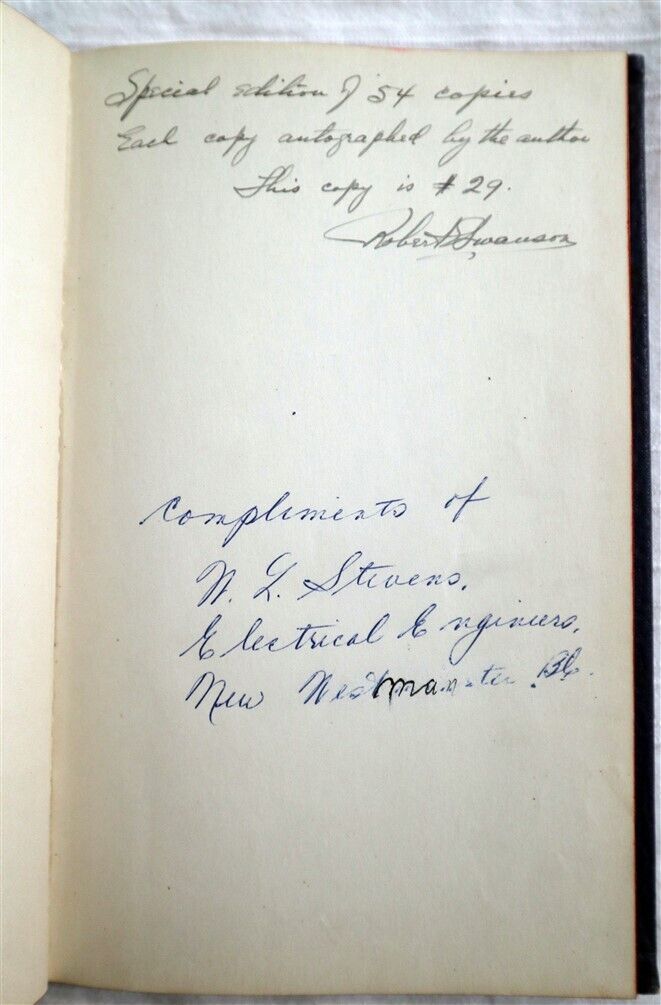 Special edition of 54 copies
Each copy autographed by the author
This copy is # 29.
Robert Swanson
Compliments of
W. L. Stevens.
Electrical Engineers.
New Westmanster B.C.